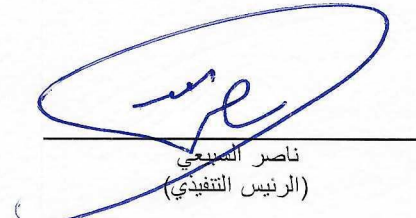 ناصر السبيعي
(الرئيس التنفيذي)